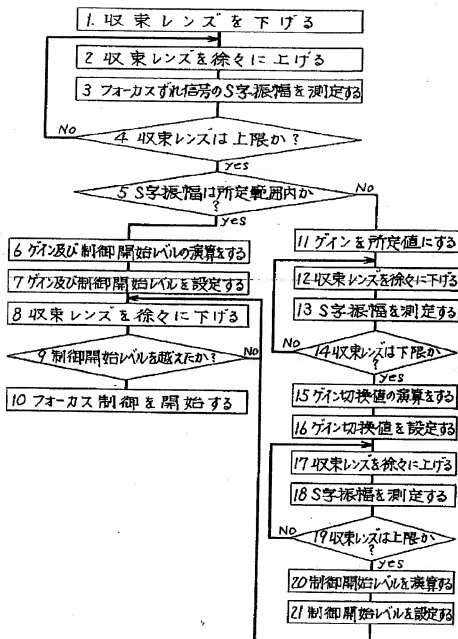 1. 収束レンズを下げる
2 収束レンズを徐々に上げる
3 フォーカスずれ信号のS字振幅を測定する
No
4 収束レンズは上限か?
yes
5 S字振幅は所定範囲内か
?
No
yes
6 ゲイン及び制御開始レベルの演算をする
7 ゲイン及び制御開始レベルを設定する
8 収束レンズを徐々に下げる
9 制御開始レベルを越えたか?
No
10 フォーカス制御を開始する
11 ゲインを所定値にする
12 収束レンズを徐々に下げる
13 S字振幅を測定する
No
14 収束レンズは下限か
?
yes
15 ゲイン切換値の演算をする
16 ゲイン切換値を設定する
17 収束レンズを徐々に上げる
18 S字振幅を測定する
No
19 収束レンズは上限か
?
yes
20 制御開始レベルを演算する
21 制御開始レベルを設定する